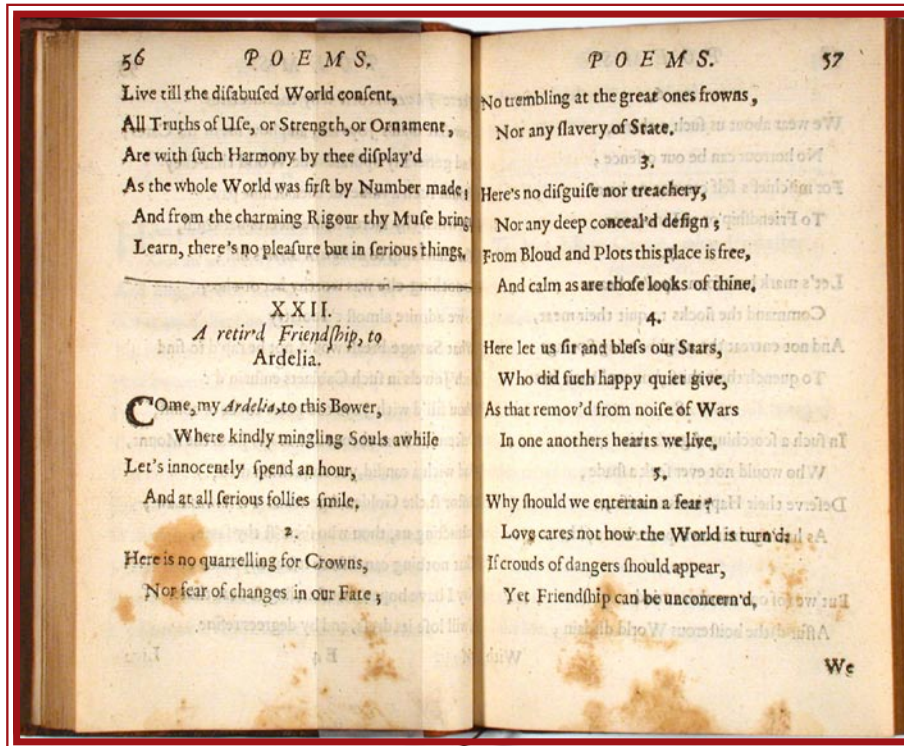 56 POEMS.
Live till the diſabuſed World conſent,
All Truths of Uſe, or Strength, or Ornament,
Are with ſuch Harmony by thee diſplay'd
As the whole World was firſt by Number made;
And from the charming Rigour thy Muſe brings
Learn, there's no pleaſure but in ſerious things.
XXII.
A retir'd Friendſhip, to
Ardelia.
COme, my Ardelia, to this Bower,
Where kindly mingling Souls awhile
Let's innocently ſpend an hour,
And at all ſerious follies ſmile.
2.
Here is no quarrelling for Crowns,
Nor fear of changes in our Fate;
POEMS. 57
No trembling at the great ones frowns,
Nor any ſlavery of State.
3.
Here's no diſguiſe nor treachery,
Nor any deep conceal'd deſign;
From Bloud and Plots this place is free,
And calm as are thoſe looks of thine.
4.
Here let us ſit and bleſs our Stars,
Who did ſuch happy quiet give,
As that remov'd from noiſe of Wars
In one anothers hearts we live.
5.
Why ſhould we entertain a fear?
Love cares not how the World is turn'd:
If crouds of dangers ſhould appear,
Yet Friendſhip can be unconcern'd.
We